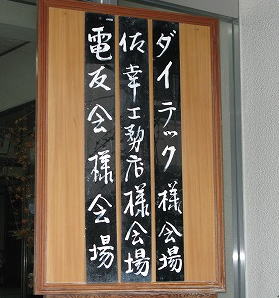 ダイテック様会場
佐幸工務店様会場
電友会様会場